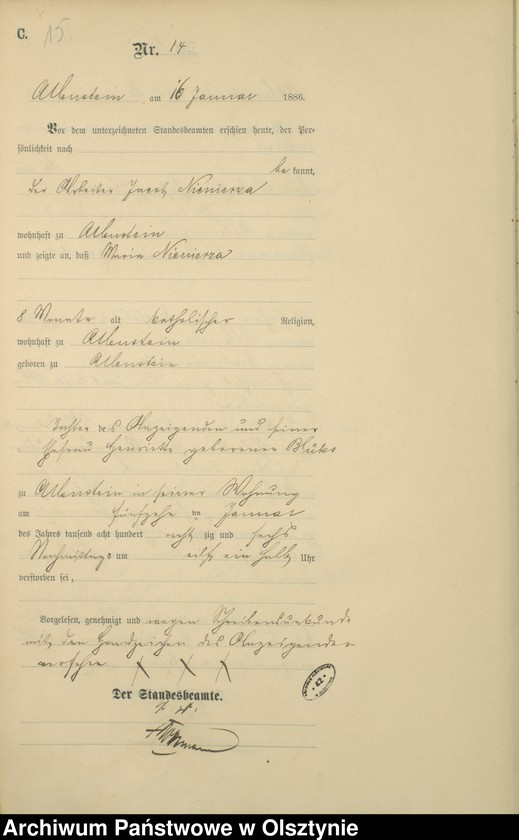 C. 15
Nr. 14
Allenstein am 16 Januar 1886.
Vor dem unterzeichneten Standesbeamten erschien heute, der Per-
sönlichkeit nach
be kannt,
der Arbeiter Jacob Niemierza
wohnhaft zu Allenstein
und zeigte an, daß Maria Niemierza
8 Monate alt katholischer Religion,
wohnhaft zu Allenstein
geboren zu Allenstein
Tochter des Anzeigenden und seiner
Ehefrau Henriette geborenen
zu Allenstein in seiner Wohnung
am fünfzehn ten Januar
des Jahres tausend acht hundert acht zig und sechs
Nachmittags um ein halb Uhr
verstorben sei,
Vorgelesen, genehmigt und wegen Schreibensunkunde
mit den Handzeichen des Anzeigenden
versehen. X X X
Der Standesbeamte.
Archiwum Państwowe w Olsztynie